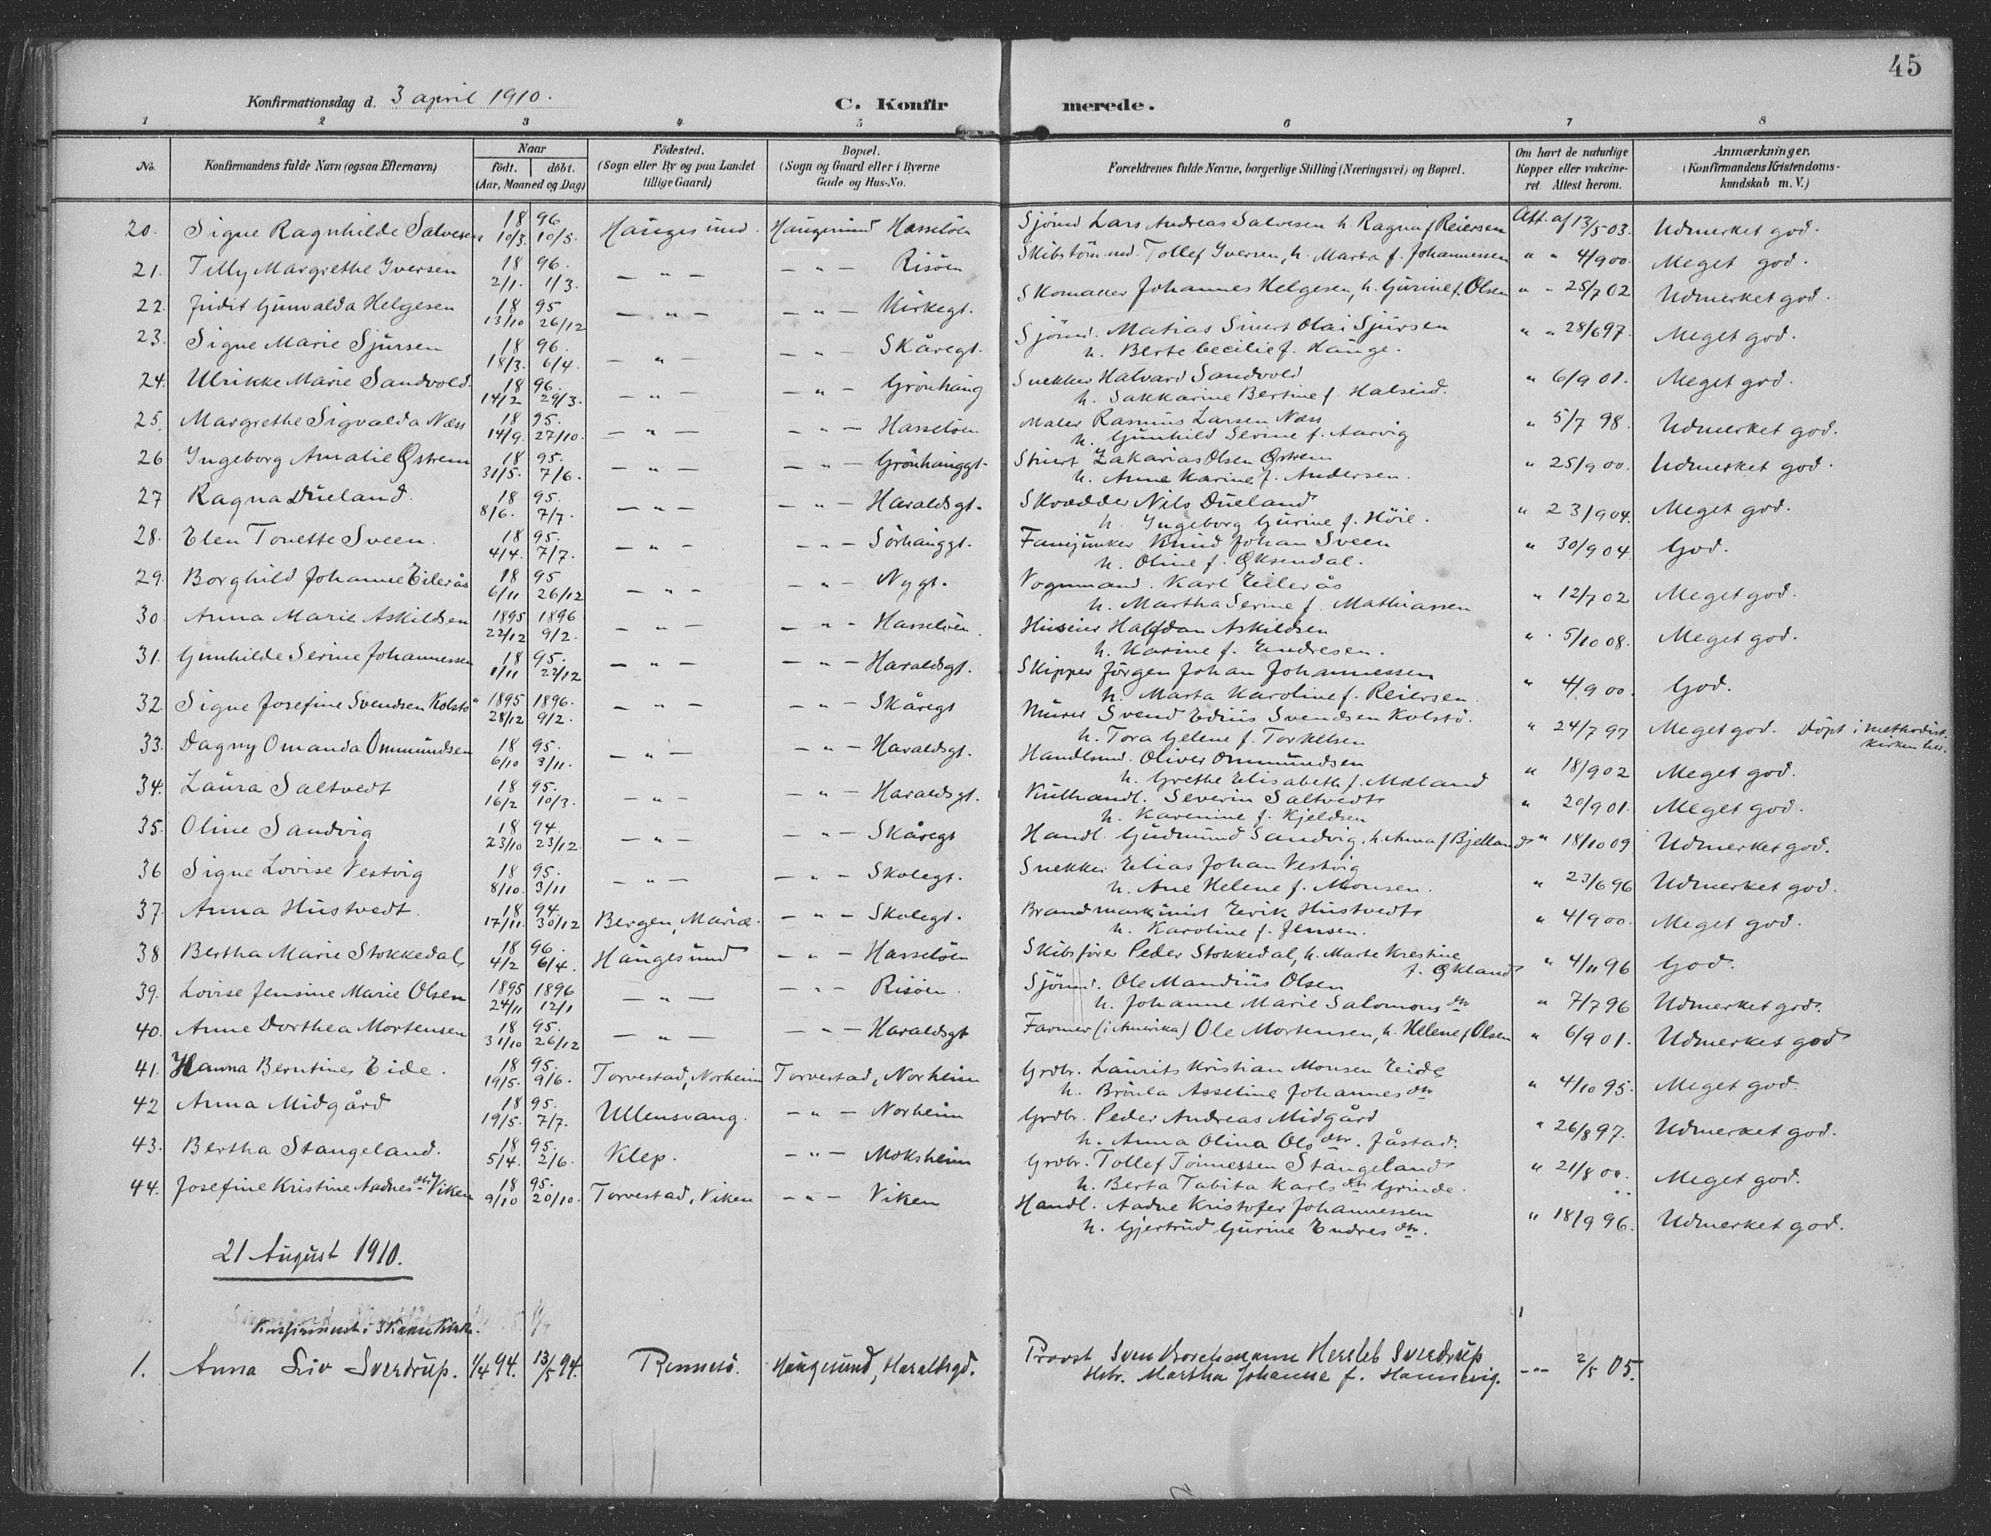 45
Konfirmationsdag d. 3 april 1910. C. Konfirmerede.
1 2 3 4 5 6 7 8
No. Konfirmandens fulde Navn (ogsaa Efternavn) Naar født. døbt. (Aar, Maaned og Dag) Fødested. (Sogn eller By og paa Landet tillige Gaard) Bopæl. (Sogn og Gaard eller i Byerne Gade og Hus-No. Forældrenes fulde Navne, borgerlige Stilling (Næringsvei) og Bopæl. Om havt de naturlige Kopper eller vakcineret. Attest herom. Anmærkninger. (Konfirmandens Kristendomskundskab m. V.)
20. Signe Ragnhilde Salvesen 18 96 10/3. 10/5. Haugesund. Haugesund Hasseløen Sjømd Lars Andreas Salvesen h. Ragna f Reiersen Att. af 13/5 03. Udmerket god.
21. Tilly Margrethe Iversen 18 96. 2/1. 1/3. — " — — " — Risøen Skibstømmd. Tollef Iversen, h. Marta f. Johannessen " " 4/9 00. Meget god.
22. Judit Gunvalda Helgesen 18 95 13/10 26/12 — " — — " — Kirkegt. Skomaker Johannes Helgesen, h. Gurine f. Olsen " " 25/7 02 Udmerket god.
23. Signe Marie Sjursen 18 96. 18/3. 6/4. — " — — " — Skåregt. Sjømd. Matias Sivert Olai Sjursen
h. Berte Cecilie f. Hauge. " " 28/6 97. Meget god.
24. Ulrikke Marie Sandvold. 18 96. 14/2 29/3. — " — — " — Grønhaug Snekker Halvard Sandvold
h. Sakkarine Bertine f. Halseid. " 6/9 01. Meget god.
25. Margrethe Sigvalda Næss 18 95. 14/9. 27/10. — " — — " — Hasseløen Maler Rasmus Larsen Næss
h. Gunhild Serine f. Aarvig " 5/7 98. Udmerket god.
26 Ingeborg Amalie Østrem 18 95. 31/5. 7/6. — " — — " — Grønhauggt. Stuert Zakarias Olsen Østrem
h. Anne Karine f. Andersen. " 25/9 00. Udmerket god.
27 Ragna Dueland. 18 95. 8/6. 7/7. — " — — " — Haraldsgt. Skrædder Nils Dueland
h. Ingeborg Gurine f. Høie. " 23/9 04. Meget god.
28. Elen Tonette Sveen. 18 95. 4/4. 7/7. — " — — " — Sørhauggt. Fanejunker Knud Johan Sveen
h. Oline f. Øksendal. " 30/9 04 God.
29. Borghild Johanne Eilerås 18 95 6/11 26/12 — " — — " — Nygt. Vognmand. Karl Eilerås
h. Martha Serine f. Mathiassen " 12/7 02 Meget god.
30. Anna Marie Askildsen 1895 1896 22/12 9/2. — " — — " — Hasseløen. Huseier Halfdan Askildsen
h. Karine f. Endresen. " 5/10 08. Meget god.
31. Gunhilde Serine Johannessen 18 95. 1/11 27/12 — " — — " — Haraldsgt. Skipper Jørgen Johan Johannessen
h. Marta Karoline f. Reiersen. " 4/9 00. God.
32. Signe Josefine Svendsen Kolstø 1895 1896. 28/12 9/2. — " — — " — Skåregt Murer Svend Edius Svendsen Kolstø.
h. Tora Helene f. Torkelsen " 24/7 97 Meget god. Døpt i methodistkirken her.
33. Dagny Omanda Ommundsen 18 95. 6/10 3/11. — " — — " — Haraldsgt. Handlsmd. Oliver Ommundsen
h. Grethe Elisabeth f. Mæland " 18/9 02 Meget god.
34. Laura Saltvedt 18 95. 16/2 10/3. — " — — " — Haraldsgt. Kulhandl. Severin Saltvedt
h. Karenine f. Kjeldsen " 20/9 01. Meget god.
35. Oline Sandvig 18 94. 23/10 23/12 — " — — " — Skåregt Handl. Gudmund Sandvig, h. Anna f Bjelland " 18/10 09 Udmerket god.
36 Signe Lovise Vestvig 18 95. 8/10. 3/11 — " — — " — Skolegt. Snekker Elias Johan Vestvig
h. Ane Helene f. Monsen. " 23/6 96 Udmerket god.
37. Anna Hustvedt. 18 94. 17/11. 30/12 Bergen, Mariæ. — " — Skolegt. Brandmaskinist Eerik Hustvedt
h. Karoline f. Jensen. " 4/9 00. Meget god.
38 Bertha Marie Stokkedal, 18 96. 4/2 6/4. Haugesund — " — Hasseløen Skibsfører Peder Stokkedal, h. Marte Krestine
f. Økland " 4/11 96 God.
39. Lovise Jensine Marie Olsen 1895 1896 24/11 12/1 — " — — " — Risøen. Sjømd. Ole Mandius Olsen
h. Johanne Marie Salomonsdtr " 7/7 96 Udmerket god.
40. Anne Dorthea Mortensen 18 95. 31/10 26/12 — " — — " — Haraldsgt Farmer (i Amerika) Ole Mortensen, h. Helene f Olsen " 6/9 01. Udmerket god
41. Hanna Berntines Eide. 18 95. 19/5. 9/6. Torvestad, Norheim Torvestad, Norheim Grdbr. Laurits Kristian Monsen Eide
h. Brønla Asseline Johannesdtr " 4/10 95. Meget god.
42 Anna Midgård 18 95. 19/5. 7/7. Ullensvang. — " — Norheim Grdbr. Peder Andreas Midgård
h. Anna Olina Olsdtr. Jåstad. " 26/8 97. Udmerket god.
43. Bertha Stangeland. 18 95. 5/4. 2/6. Klep. — " — Moksheim Grdbr. Tollef Tønnessen Stangeland
h. Berta Tabita Karlsdtr Grinde. " 21/8 00. Meget god.
44. Josefine Kristine Aadnesdtr Viken 18 95. 9/10 20/10. Torvestad, Viken — " — Viken Handl. Aadne Kristofer Johannessen
h. Gjertrud Gurine Endresdtr. " 18/9 96. Udmerket god.
21 August 1910.
1. Anna Liv Sverdrup. 1/4 94. 13/5 94. Rennesø. Haugesund, Haraldsgd. Provst Sven Borchmann Hersleb Sverdrup
Hbr. Martha Johanne f. Hannevig. — " — 2/5 05.